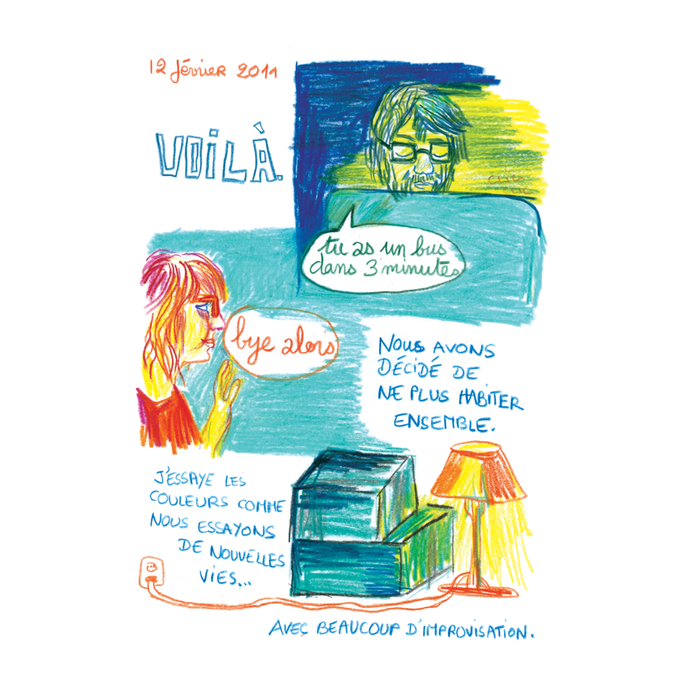 12 février 2011
VOILÀ.
tu as un bus
dans 3 minutes
bye alors
NOUS AVONS
DÉCIDÉ DE
NE PLUS HABITER
ENSEMBLE.
J'ESSAYE LES
COULEURS COMME
NOUS ESSAYONS
DE NOUVELLES
VIES...
AVEC BEAUCOUP D'IMPROVISATION.